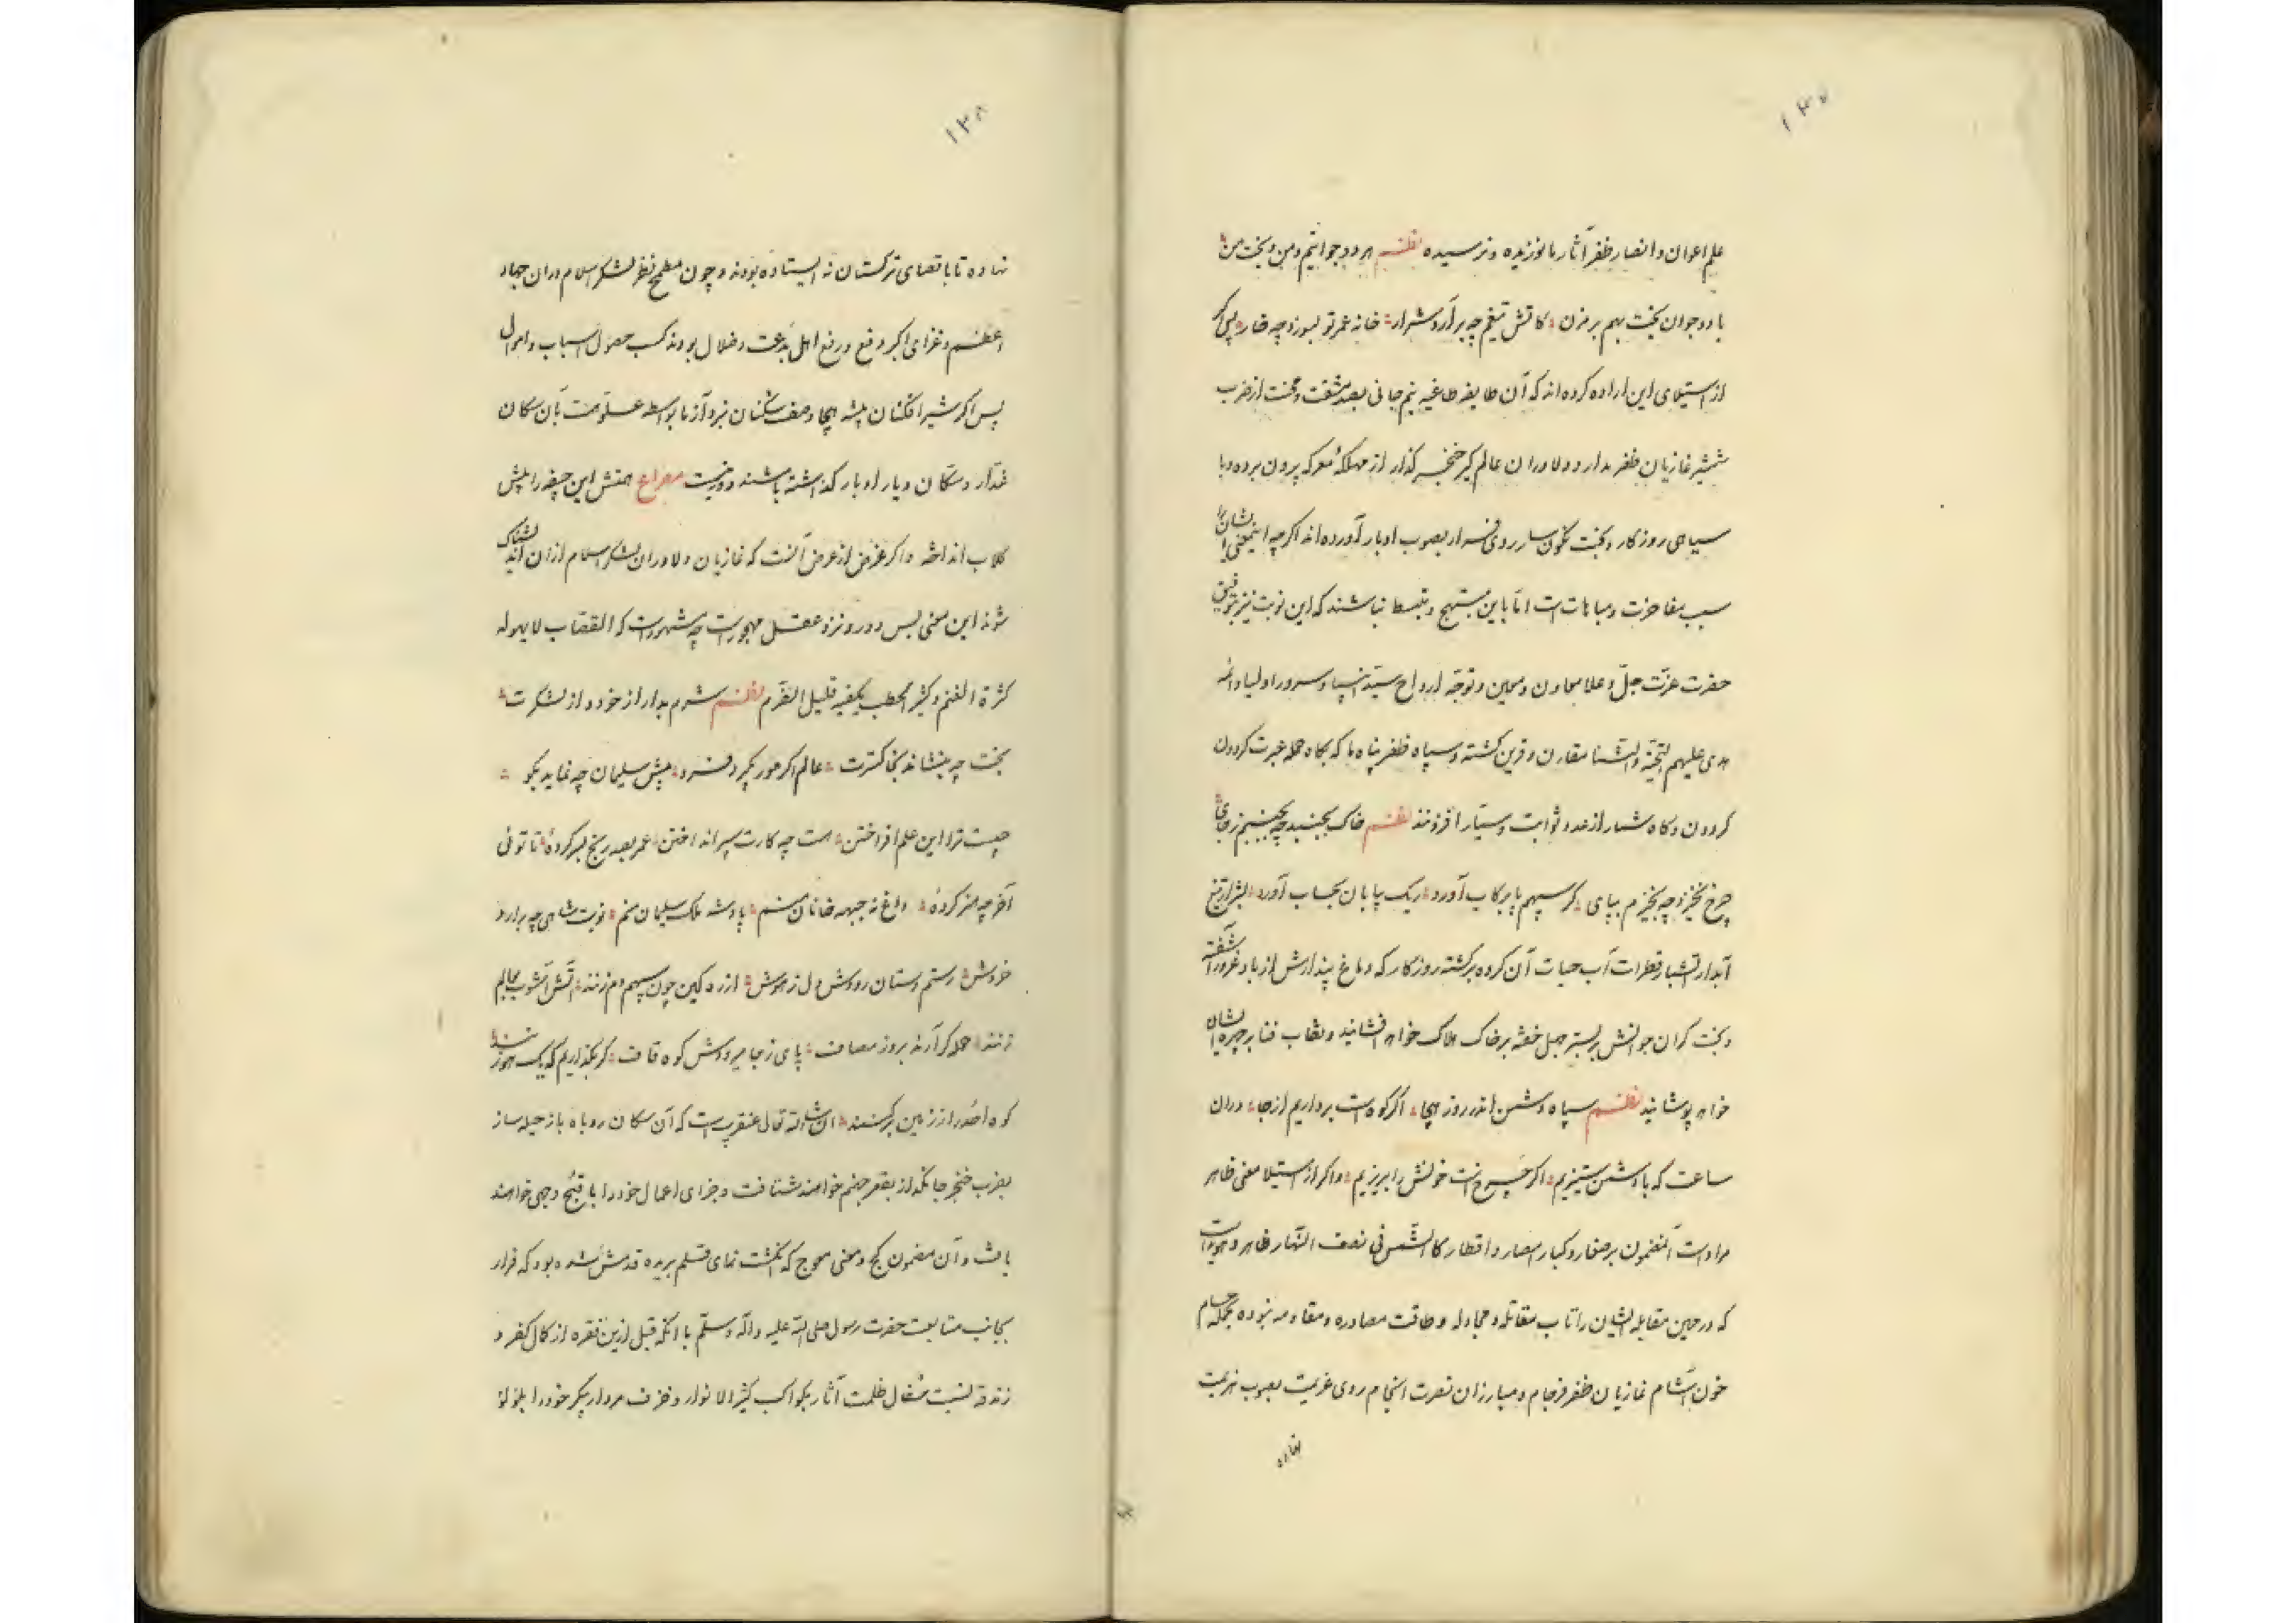 ۱۳۷
علم اعوان و انصار ظفر آثار ما نوزیده و نرسیده نظم هر دو جوانیم و من و بخت من
با دو جوان بخت بهم بر مزن کاتش تیغم چه بر آرد شرار خانه عمر تو بسوزد چه خار پس اگر
از استیلای این اراده کرده‌اند که آن طایفه طاغیه نیم جانی بصد مشقت و محنت از ضرب
شمشیر غازیان ظفر مدار و دلاوران عالم گیر خنجر گذار از مهلکهٔ معرکه بیرون برده و با
سیاهی روزگار و بخت نگون سار روی فرار بصوب ادبار آورده‌اند اگر چه اینمعنی ایشان را
سبب مفاخرت و مباهات است اما باین مبتهج و منبسط نباشند که این نوبت نیز بتوفیق
حضرت عزت جل و علا معاون و معین و توجه ارواح سید انبیا و سرور اولیا و ائمه
هدی علیهم التحیة و الثنا مقارن و قرین گشته و سپاه ظفر پناه ما که بگاه حمله عبرت گردون
گردون و گاه شمار از عدد ثوابت و سیار افزونند نظم خاک بجنبد چه بجنبم ز جای
چرخ نخیزد چه بخیزم بپای گر سپهم پا برکاب آورد ریک بیابان بحساب آورد بشرار تیغ
آبدار آتشبار قطرات آب حیات آن گروه برگشته روزگار که دماغ پندارش از باد غرور آشفته
و بخت گران جوانش بر بستر جهل خفته بر خاک هلاک خواهد افشانید و نقاب فنا بر چهره ایشان
خواهد پوشانید نظم سپاه دشمن اندر روز هیجا اگر کوهست برداریم از جا دران
ساعت که با دشمن ستیزیم اگر چرخ است خونش را بریزیم و اگر از استیلا معنی ظاهر
مراد است آنمضمون بر صغار و کبار امصار و اقطار کالشمس فی نصف النهار ظاهر و هویداست
که در حین مقابله ایشان را تاب مقاتله و مجادله و طاقت مصادره و مقاومه نبوده بحمله حسام
خون آشام غازیان ظفر فرجام و مبارزان نصرت انجام روی عزیمت بصوب هزیمت
نهاده
۱۳۸
نهاده تا باقصای ترکستان نه ایستاده بودند و چون مطمح نظر لشکر اسلام دران جهاد
اعظم و غزای اکبر دفع و رفع اهل بدعت و ضلال بودند کسب حصول اسباب و اموال
پس اگر شیر افکنان بیشه هیجا و صف شکنان نبرد آزما بواسطه علو همت بآن سکان
غدار و سکان دیار ادبار گذاشته باشند دور نیست مصراع همتش این جیفه را پیش
کلاب انداخته و اگر غرض از عرض آنست که غازیان و دلاوران لشکر اسلام ازان اندیشناک
شوند این معنی بس دور و نزد عقل مهجور است چه مشهور است که القصاب لا یهوله
کثرة الغنم و کثیر الحطب یکفیه قلیل الضرم نظم شرم بدار از خود و از لشکرت
بخت چه بنشاند بخاکسترت عالم اگر مور بگیرد فرو پیش سلیمان چه نماید بگو
چیست ترا این علم افراختن هست چه کارت سپر انداختن عمر بصد رنج بسر کردهٔ تا تو نی
آخر چه هنر کردهٔ داغ نه جبهه خانان منم پادشه ملک سلیمان منم نوبت شاهی چه بر آرد
خروش رستم دستان رودش دل ز هوش از ره کین چون سپهم دم زنند آتش آشوب بعالم
زنند حمله گر آرند بروز مصاف پای ز جا میرودش کوه قاف گر بگذاریم که یک هو زنند
کوه احد را ز زمین بر کنند ان شاء الله تعالی عنقریب است که آن سکان روباه باز حیله ساز
بضرب خنجر جانگداز بقعر جهنم خواهند شتافت و جزای اعمال خود را باقبح وجهی خواهند
یافت و آن مضمون کج و معنی معوج که انگشت نمای قلم بریده قدمش شده بود که قرار
بجانب متابعت حضرت رسول صلی الله علیه و آله و سلم با آنکه قبل ازین فقره از کمال کفر و
زندقه نسبت سفال ظلمت آثار بکواکب کثیر الانوار و خزف مردار پیکر خود را بلؤلؤ